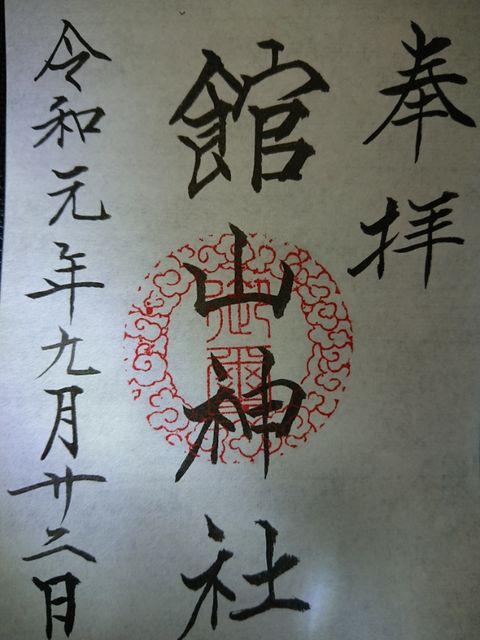 奉拝
館山神社
御璽
令和元年九月廿二日